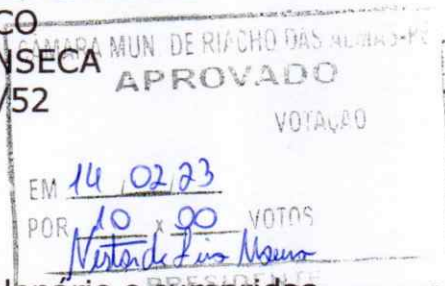 CO
NSECA
/52
CÂMARA MUN. DE RIACHO DAS ALMAS-PE
APROVADO
VOTAÇÃO
EM 14 02 23
POR 10 x 00 VOTOS
de Lira Moura
PRESIDENTE